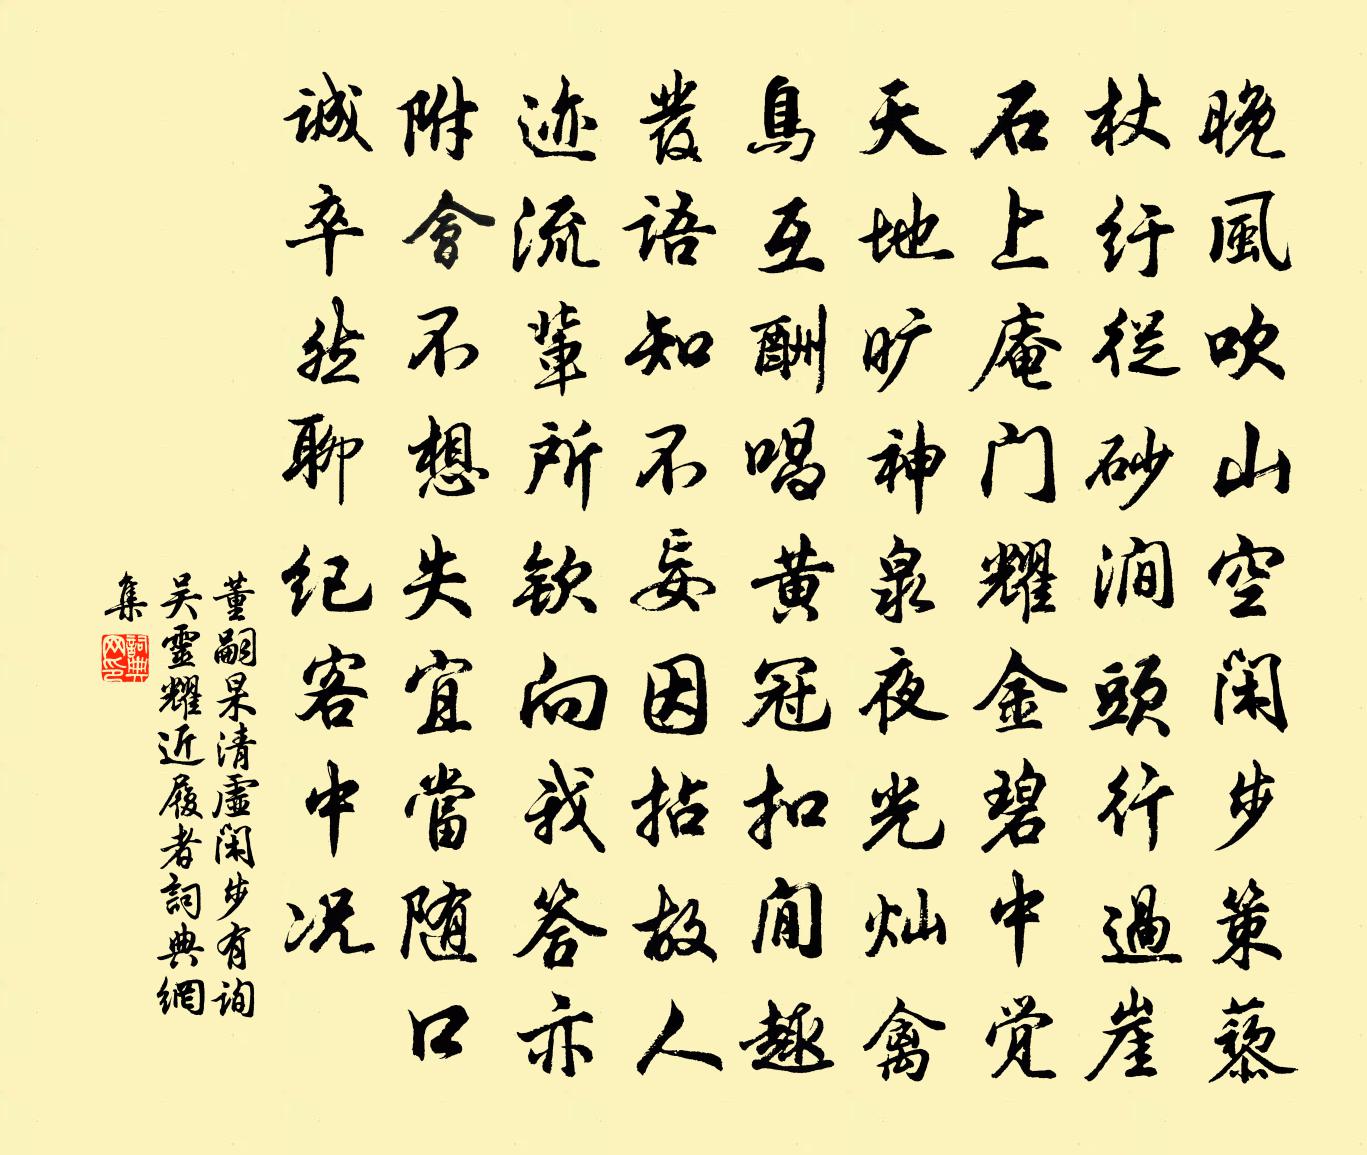 晚風吹山空闲步策藜
杖纡從砂澗頭行過崖
石上庵门耀金碧中觉
天地旷神泉夜光灿禽
鳥互酬唱黄冠扣閒趣
發語知不妄因拈故人
迹流輩所欽向我答亦
附會不想失宜當随口
诚卒然聊纪客中况
董嗣杲清虚闲步有询
吴靈耀近履者詞典網
集
詞典网印